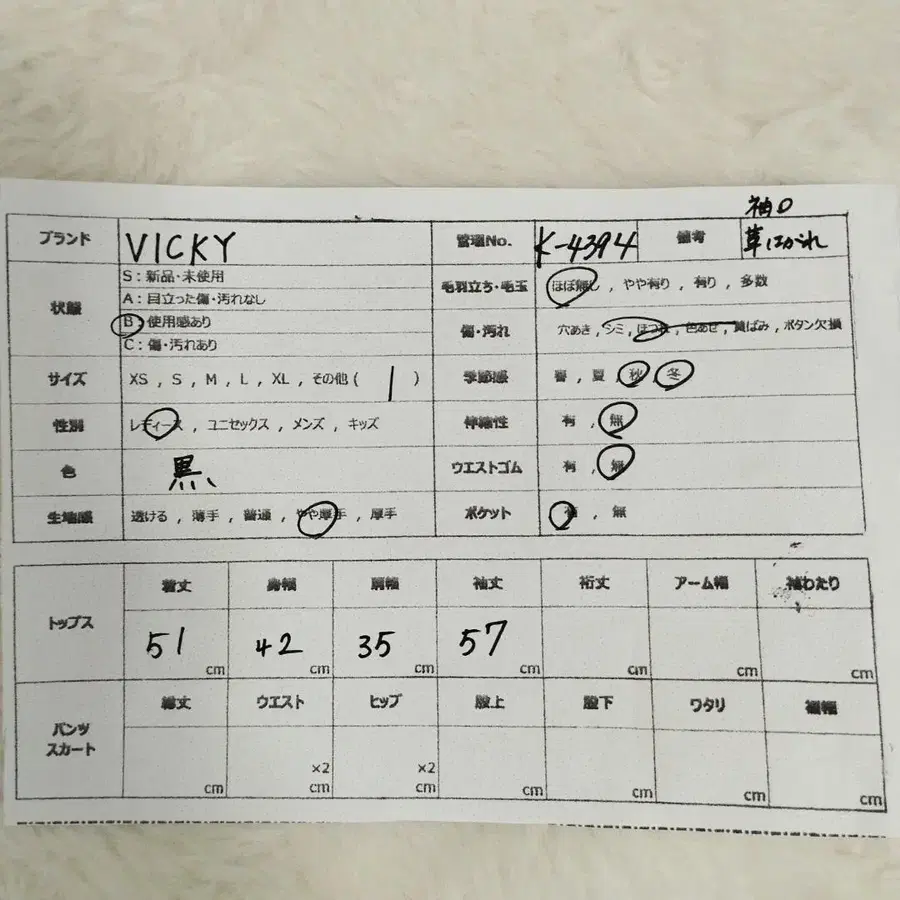 袖口
ブランド VICKY 管理No. K-4394 備考 革はがれ
状態 S:新品・未使用 毛羽立ち・毛玉 ほぼ無し , やや有り , 有り , 多数
A:目立った傷・汚れなし
B:使用感あり 傷・汚れ 穴あき , シミ , ほつれ , 色あせ , 黄ばみ , ボタン欠損
C:傷・汚れあり
サイズ XS , S , M , L , XL , その他 ( 1 ) 季節感 春 , 夏 , 秋 , 冬
性別 レディース , ユニセックス , メンズ , キッズ 伸縮性 有 , 無
色 黒 ウエストゴム 有 , 無
生地感 透ける , 薄手 , 普通 , やや厚手 , 厚手 ポケット 有 , 無
トップス 着丈 身幅 肩幅 袖丈 裄丈 アーム幅 袖わたり
51 cm 42 cm 35 cm 57 cm cm cm cm
パンツ スカート 総丈 ウエスト ヒップ 股上 股下 ワタリ 裾幅
×2 ×2
cm cm cm cm cm cm cm